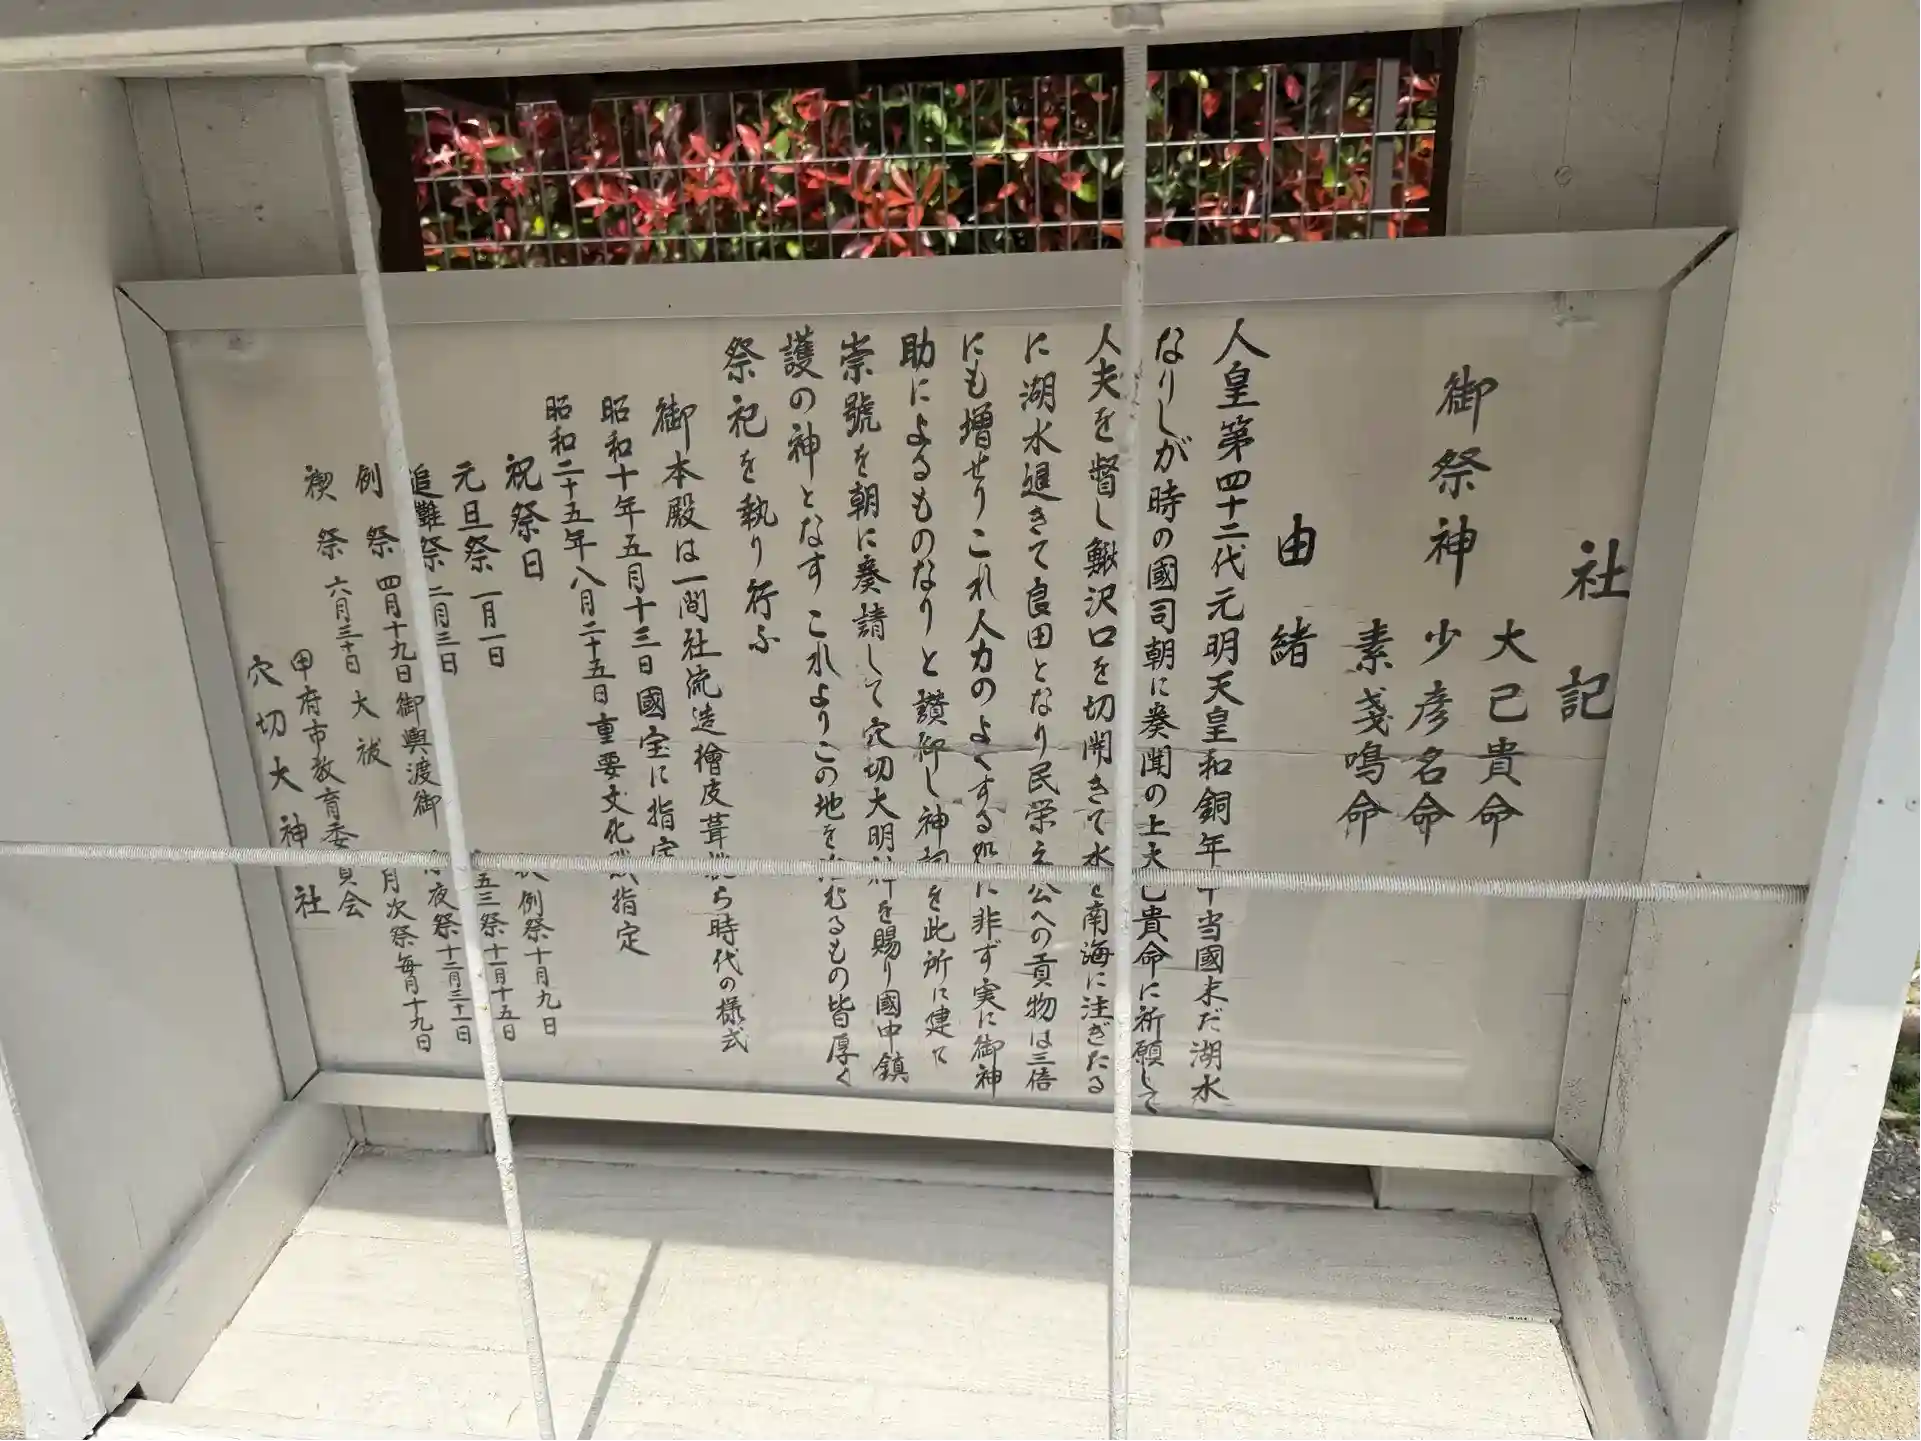 社記
御祭神
大己貴命
少彦名命
素戔鳴命
由緒
人皇第四十二代元明天皇和銅年中当國未だ湖水
なりしが時の國司朝に奏聞の上大己貴命に祈願して
人夫を督し鰍沢口を切開きて水を南海に注ぎたる
に湖水退きて良田となり民栄え公への貢物は三倍
にも増せりこれ人力のよくする処に非ず実に御神
助によるものなりと讃仰し神祠を此所に建て
崇號を朝に奏請して穴切大明神を賜り國中鎮
護の神となすこれよりこの地を むるもの皆厚く
祭祀を執り行ふ
御本殿は一間社流造檜皮葺桃山時代の様式
昭和十年五月十三日國宝に指定
昭和二十五年八月二十五日重要文化 指定
祝祭日
元旦祭 一月一日
追儺祭 二月三日
例祭 四月十九日御輿渡御
禊祭 六月三十日大祓
例祭十月九日
五三祭十一月十五日
夜祭十二月三十一日
月次祭毎月十九日
甲府市教育委員会
穴切大神社